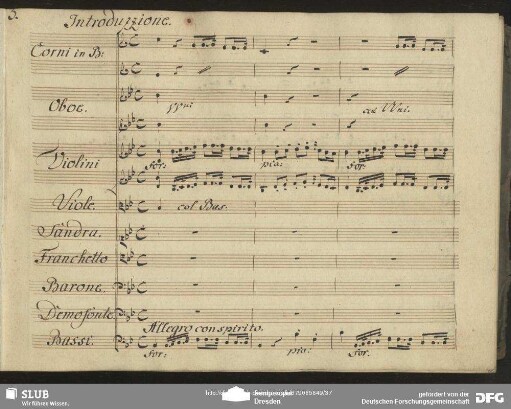 3.
Introduzione.
Corni in B:
Oboe.
VVni
col VVni.
Violini
for:
pia:
for.
Viole.
col Bas.
Sandra.
Franchetto
Barone.
Demofonte
Allegro con spirito.
Bassi.
for:
pia:
for.
SLUB
Wir führen Wissen.
Dresden
gefördert von der
Deutschen Forschungsgemeinschaft
DFG